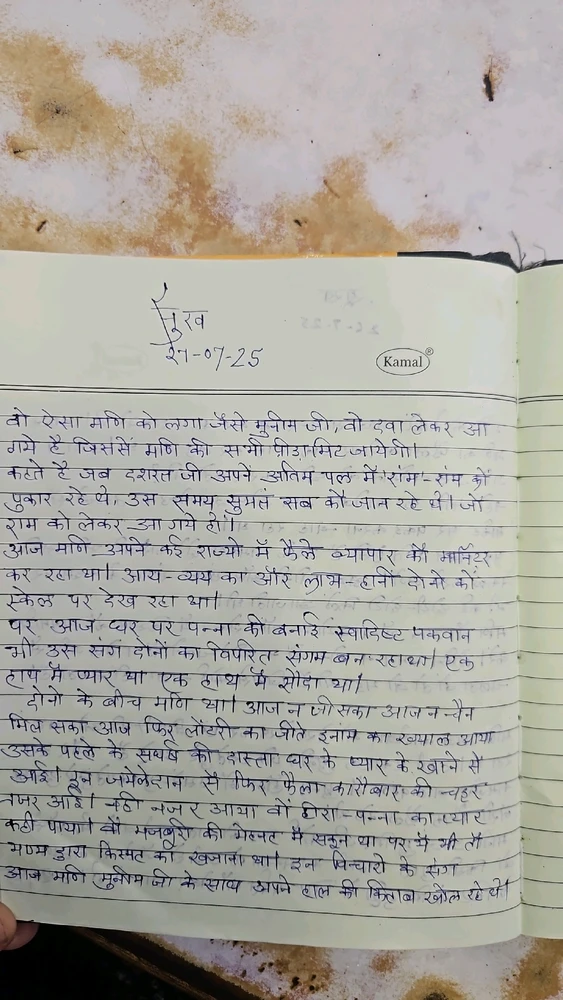 सुख
27-07-25
Kamal®
वो ऐसा मणि को लगा जैसे मुनीम जी, वो दवा लेकर आ
गये है जिससें मणि की सभी पीडा मिट जायेगी।
कहते है जब दशरत जी अपने अंतिम पल में 'राम'-राम को
पुकार रहे थे, उस समय सुमंत सब को जान रहे थे। जो
राम को लेकर आ गये हो।
आज मणि अपने कई राज्यो में फैले व्यापार को मॉनिटर
कर रहा था। आय-व्यय का और लाभ-हानी दोनो को
स्केल पर देख रहा था।
पर आज घर पर पन्ना की बनाई स्वादिष्ट पकवान
भी उस संग दोनों का विपरित संगम बन रहा था। एक
हाथ में प्यार था एक हाथ में सौदा था।
दोनो के बीच मणि था। आज न जी सका आज न चैन
मिल सका आज फिर लॉटरी का जीते इनाम का ख्याल आया
उसके पहले के संघर्ष की दास्ता घर के प्यार के खाने में
आई। इन जमेलेदान से फिर फैला कारोबार की चहर
नजर आई। नही नजर आया वो हीरा-पन्ना का प्यार
कही पाया। वो मजबूरी की मेहनत में सकून था पर ये भी तो
भाग्य द्वारा किस्मत का खजाना था। इन विचारो के संग
आज मणि मुनीम जी के साथ अपने हाल की किताब खोल रहे थे।